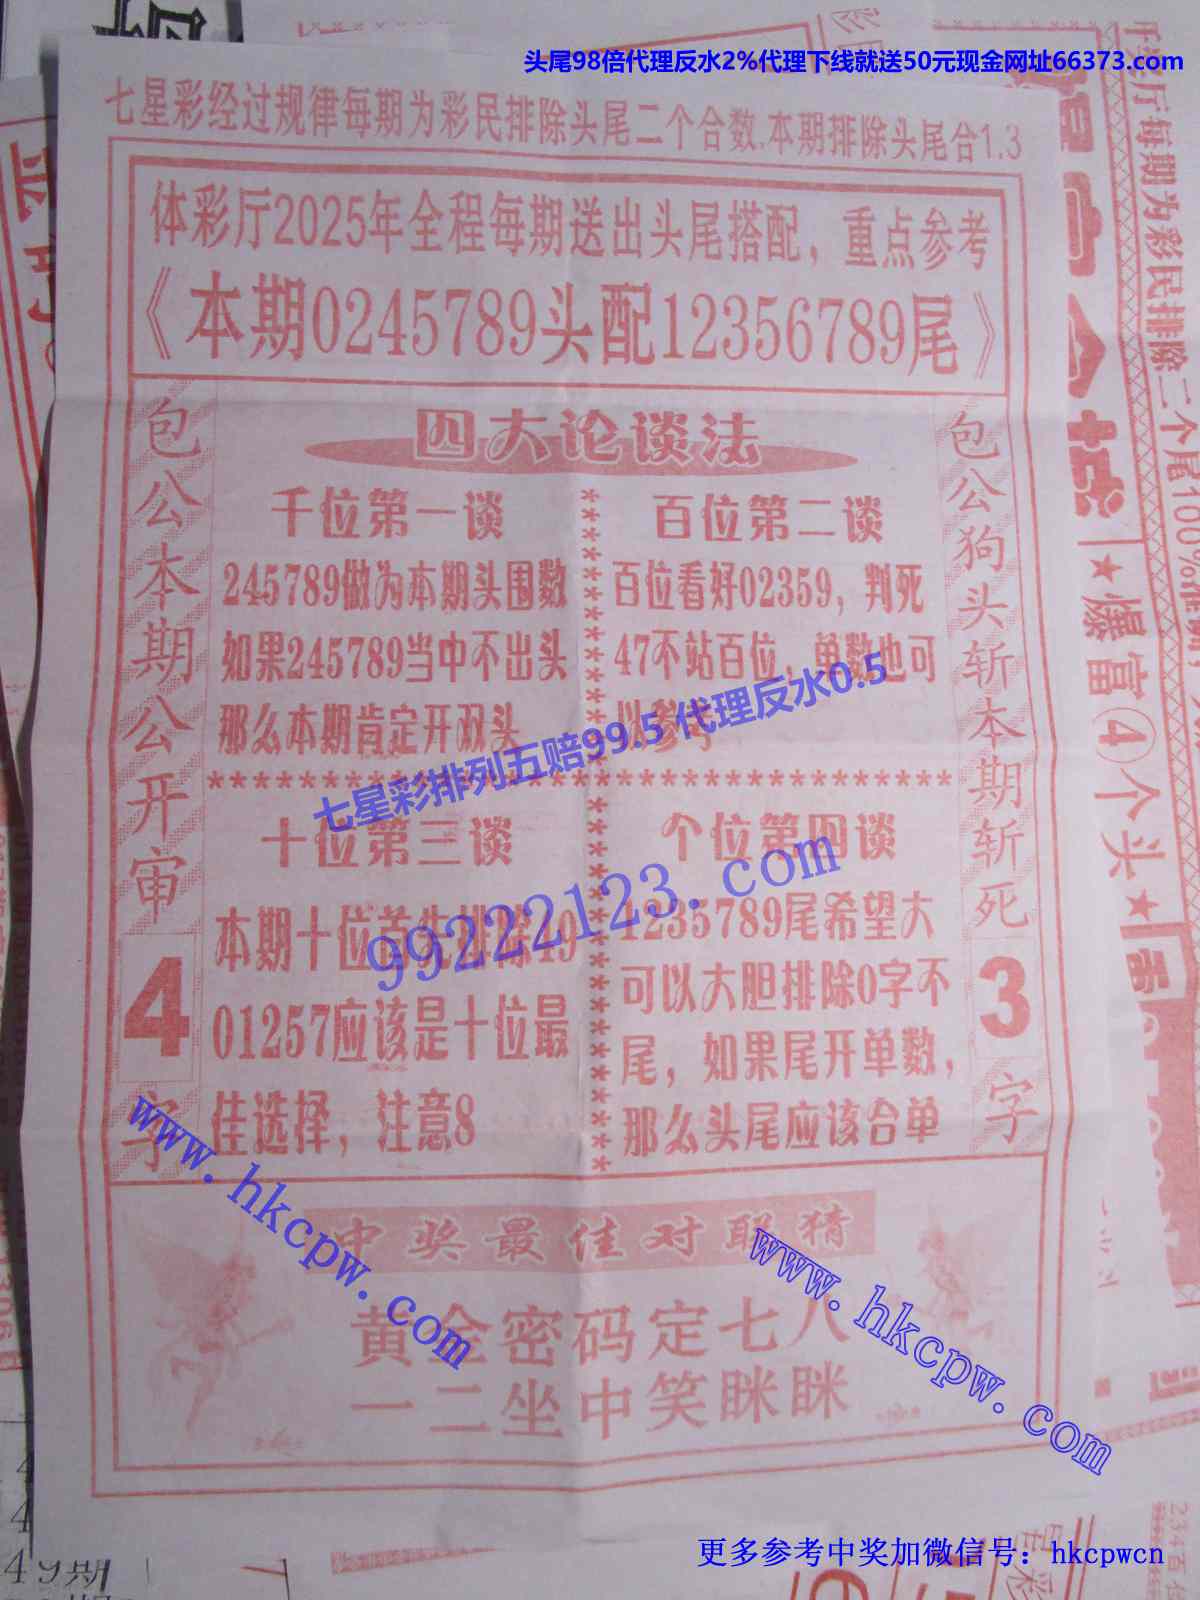 头尾98倍代理反水2%代理下线就送50元现金网址66373.com
七星彩经过规律每期为彩民排除头尾二个合数.本期排除头尾合1.3
体彩厅2025年全程每期送出头尾搭配，重点参考
《本期0245789头配12356789尾》
四大论谈法
包公本期公开审
4
字
千位第一谈
245789做为本期头围数
如果245789当中不出头
那么本期肯定开双头
百位第二谈
百位看好02359，判死
47不站百位，单数也可
以参考
七星彩排列五赔99.5 代理反水0.5
十位第三谈
本期十位首先排除49
01257应该是十位最
佳选择，注意8
99222123.com
个位第四谈
1235789尾希望大
可以大胆排除0字不
尾，如果尾开单数，
那么头尾应该合单
包公狗头斩本期斩死
3
字
www.hkcpw.com
www.hkcpw.com
中奖最佳对联猜
黄金密码定七八
一二坐中笑眯眯
仟奖厅每期为彩民排除二个尾100%
★爆富④个头★
49期
更多参考中奖加微信号：hkcpwcn